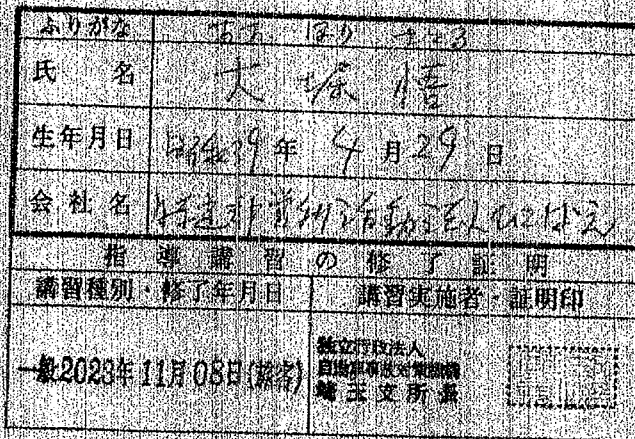 ふりがな おお ほり さとる
氏 名 大堀 悟
生年月日 昭和39年 4月29日
会社名
指導講習の修了証明
講習種別・修了年月日 講習実施者・証明印
一般2023年11月08日(旅客) 独立行政法人
自動車事故対策機構
埼玉支所長